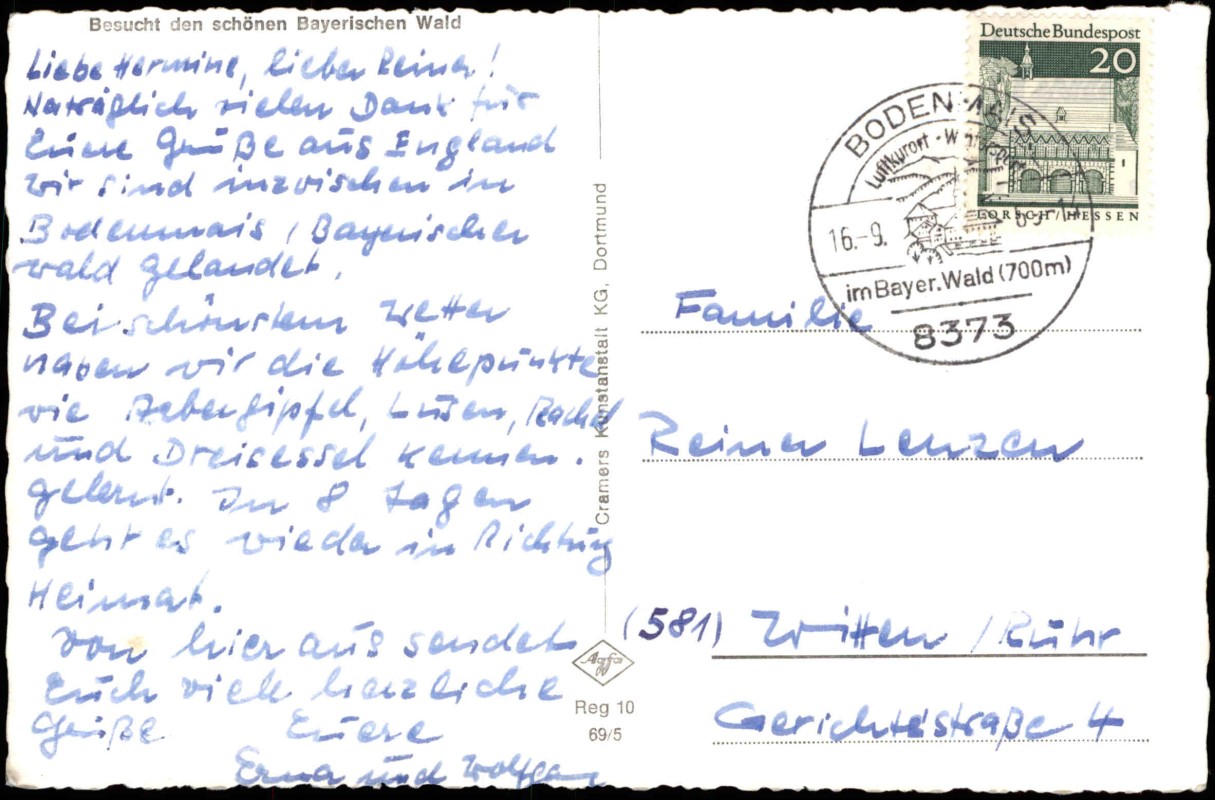 Besucht den schönen Bayerischen Wald
Liebe Hermine, lieber Reiner!
Naträglich vielen Dank für
Euere Grüße aus England
wir sind inzwischen in
Bodenmais / Bayerischer
wald gelandet.
Bei schönstem Wetter
haben wir die Höhepunkte
wie Arbergipfel, Lusen, Rachel
und Dreisessel kennen.
gelernt. In 8 Tagen
geht es wieder in Richtung
Heimat.
von hier aus sendet
Euch viele herzliche
Grüße Euere
Erna und Wolfgang
Cramers Kunstanstalt KG, Dortmund
Agfa
Reg 10
69/5
Deutsche Bundespost
20
LORSCH / HESSEN
BODENMAIS
Luftkurort · Wintersport
16.-9. 69-14
im Bayer. Wald (700m)
8373
Familie
Reiner Lenzen
(581) Witten / Ruhr
Gerichtsstraße 4